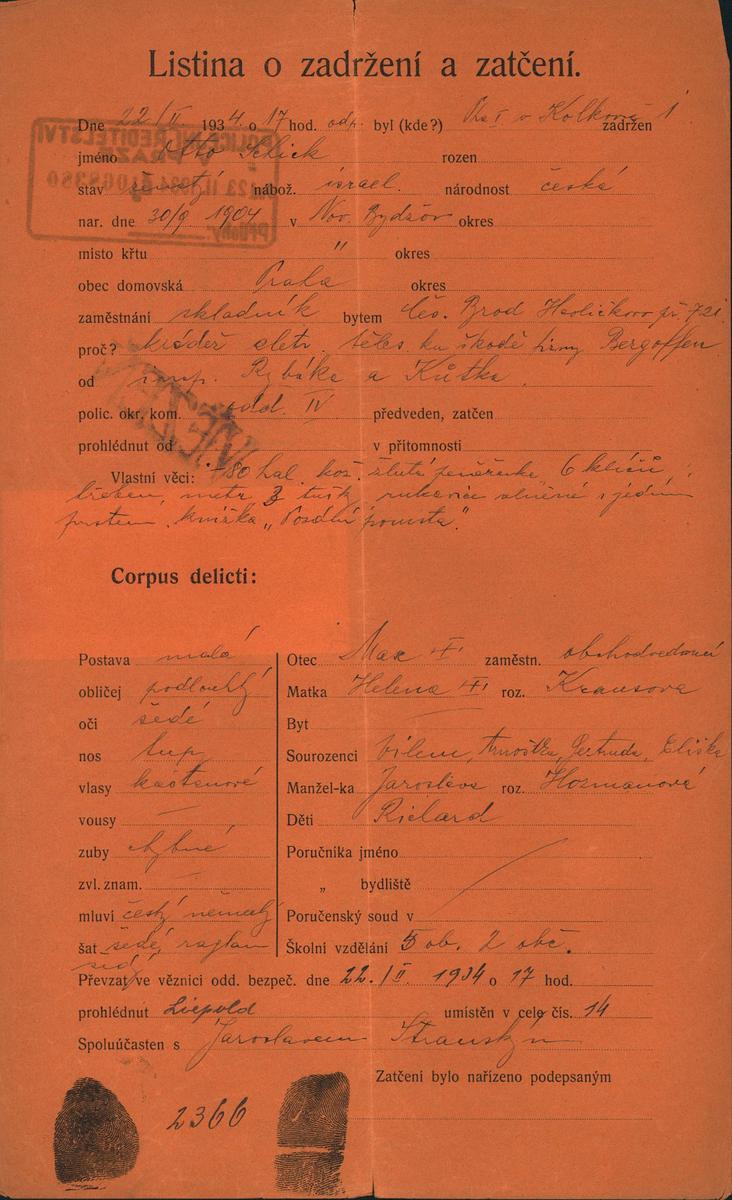 Listina o zadržení a zatčení.
Dne 22/II 1934 o 17 hod. odp. byl (kde?) v Kolkovně 1 zadržen
jméno Otto Schick rozen
stav ženatý nábož. israel. národnost česká
nar. dne 30/9 1904 v Nov. Bydžov okres
místo křtu " okres
obec domovská Praha okres
zaměstnání skladník bytem Čes. Brod Havlíčkovo 721
proč? krádež eletr. těles. ku škodě firmy Bergoffen
od insp. Rybáka a Kůtka.
polic. okr. kom. odd. IV předveden, zatčen
prohlédnut od v přítomnosti
Vlastní věci: -80 hal. kož. žlutá peněženka, 6 klíčů,
hřeben, metr 3 tušk. rukavice vlněné s jedním
prstem, knížka „Poslní pomsta".
Corpus delicti:
Postava malá
obličej podlouhlý
oči šedé
nos tup
vlasy kaštanové
vousy —
zuby chybné
zvl. znam. —
mluví český německý
šat šedé raglan
šedý
Otec Max zaměstn. obchodvedoucí
Matka Helena roz. Krausova
Byt —
Sourozenci Vilem, Arnoštka, Gertruda, Eliška
Manžel-ka Jaroslava roz. Hozmanová
Děti Richard
Poručníka jméno
„ bydliště
Poručenský soud v
Školní vzdělání 5 ob. 2 obč.
Převzat ve věznici odd. bezpeč. dne 22./II 1934 o 17 hod.
prohlédnut Liepold umístěn v cele čís. 14
Spoluúčasten s Jaroslavem Stranským
Zatčení bylo nařízeno podepsaným
2366